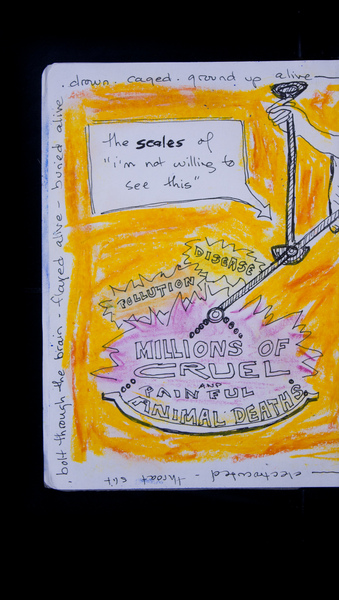 . drown . caged . ground up alive
the scales of
"i'm not willing to
see this"
DISEASE
POLLUTION
MILLIONS OF
CRUEL
AND
PAINFUL
ANIMAL DEATHS
. bolt through the brain - flayed alive - buried alive
electrocuted - throat slit